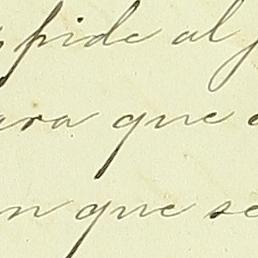 spide al
ara que
n que se